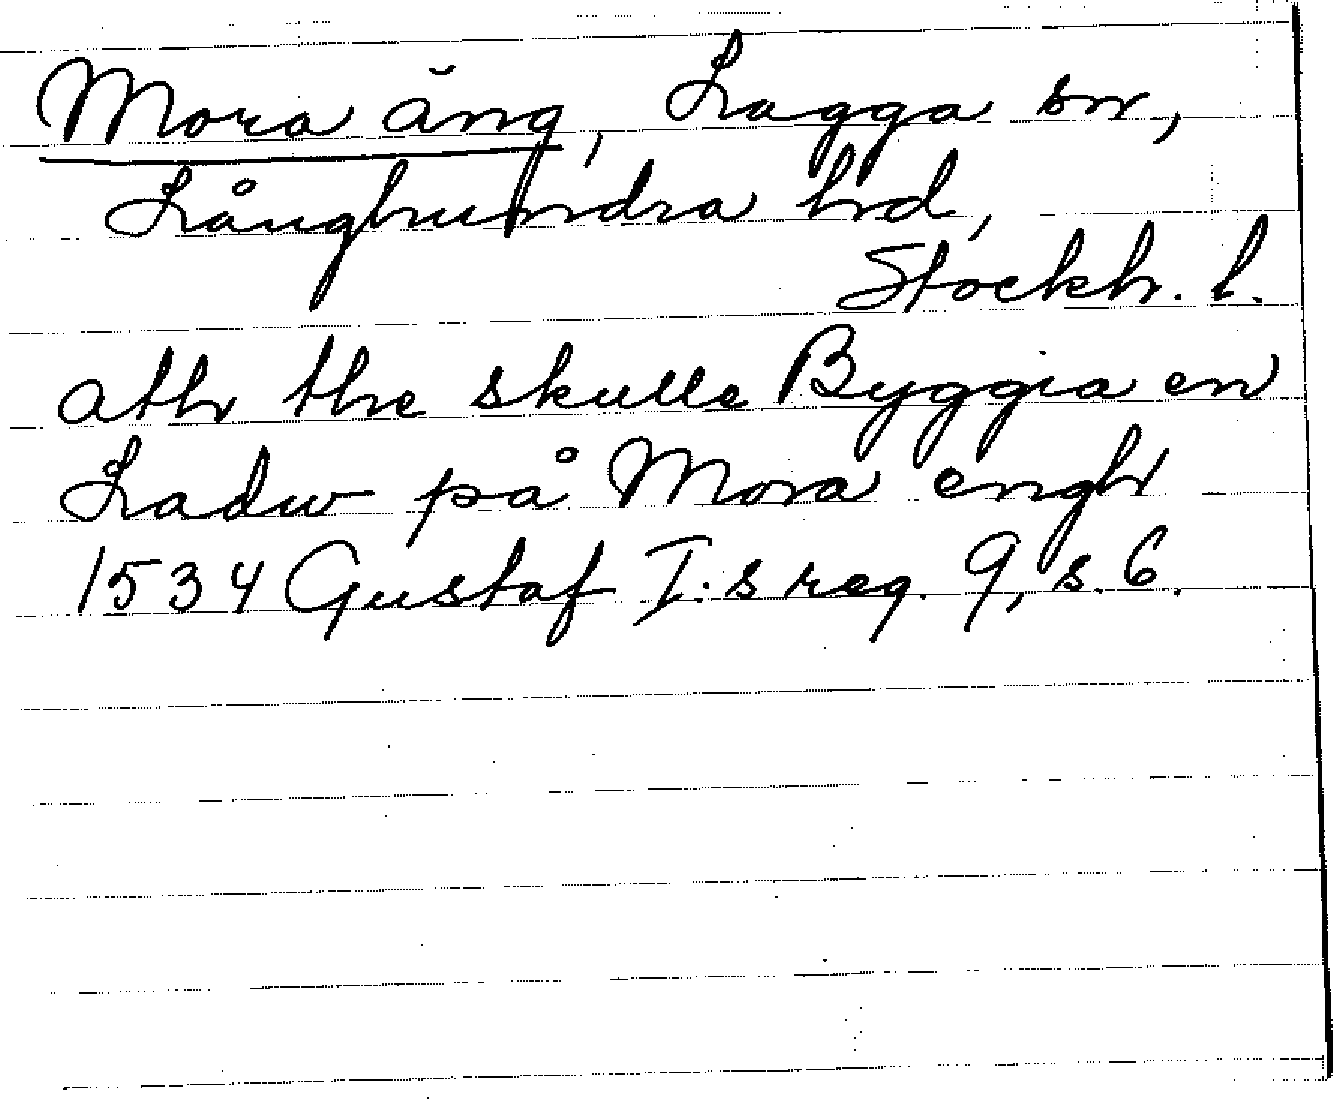 Mora äng, Lagga sn,
Långhundra hd,
Stockh. l.
ath the skulle Byggia en
Ladw på Mora engh
1534 Gustaf I:s reg. 9, s. 6.